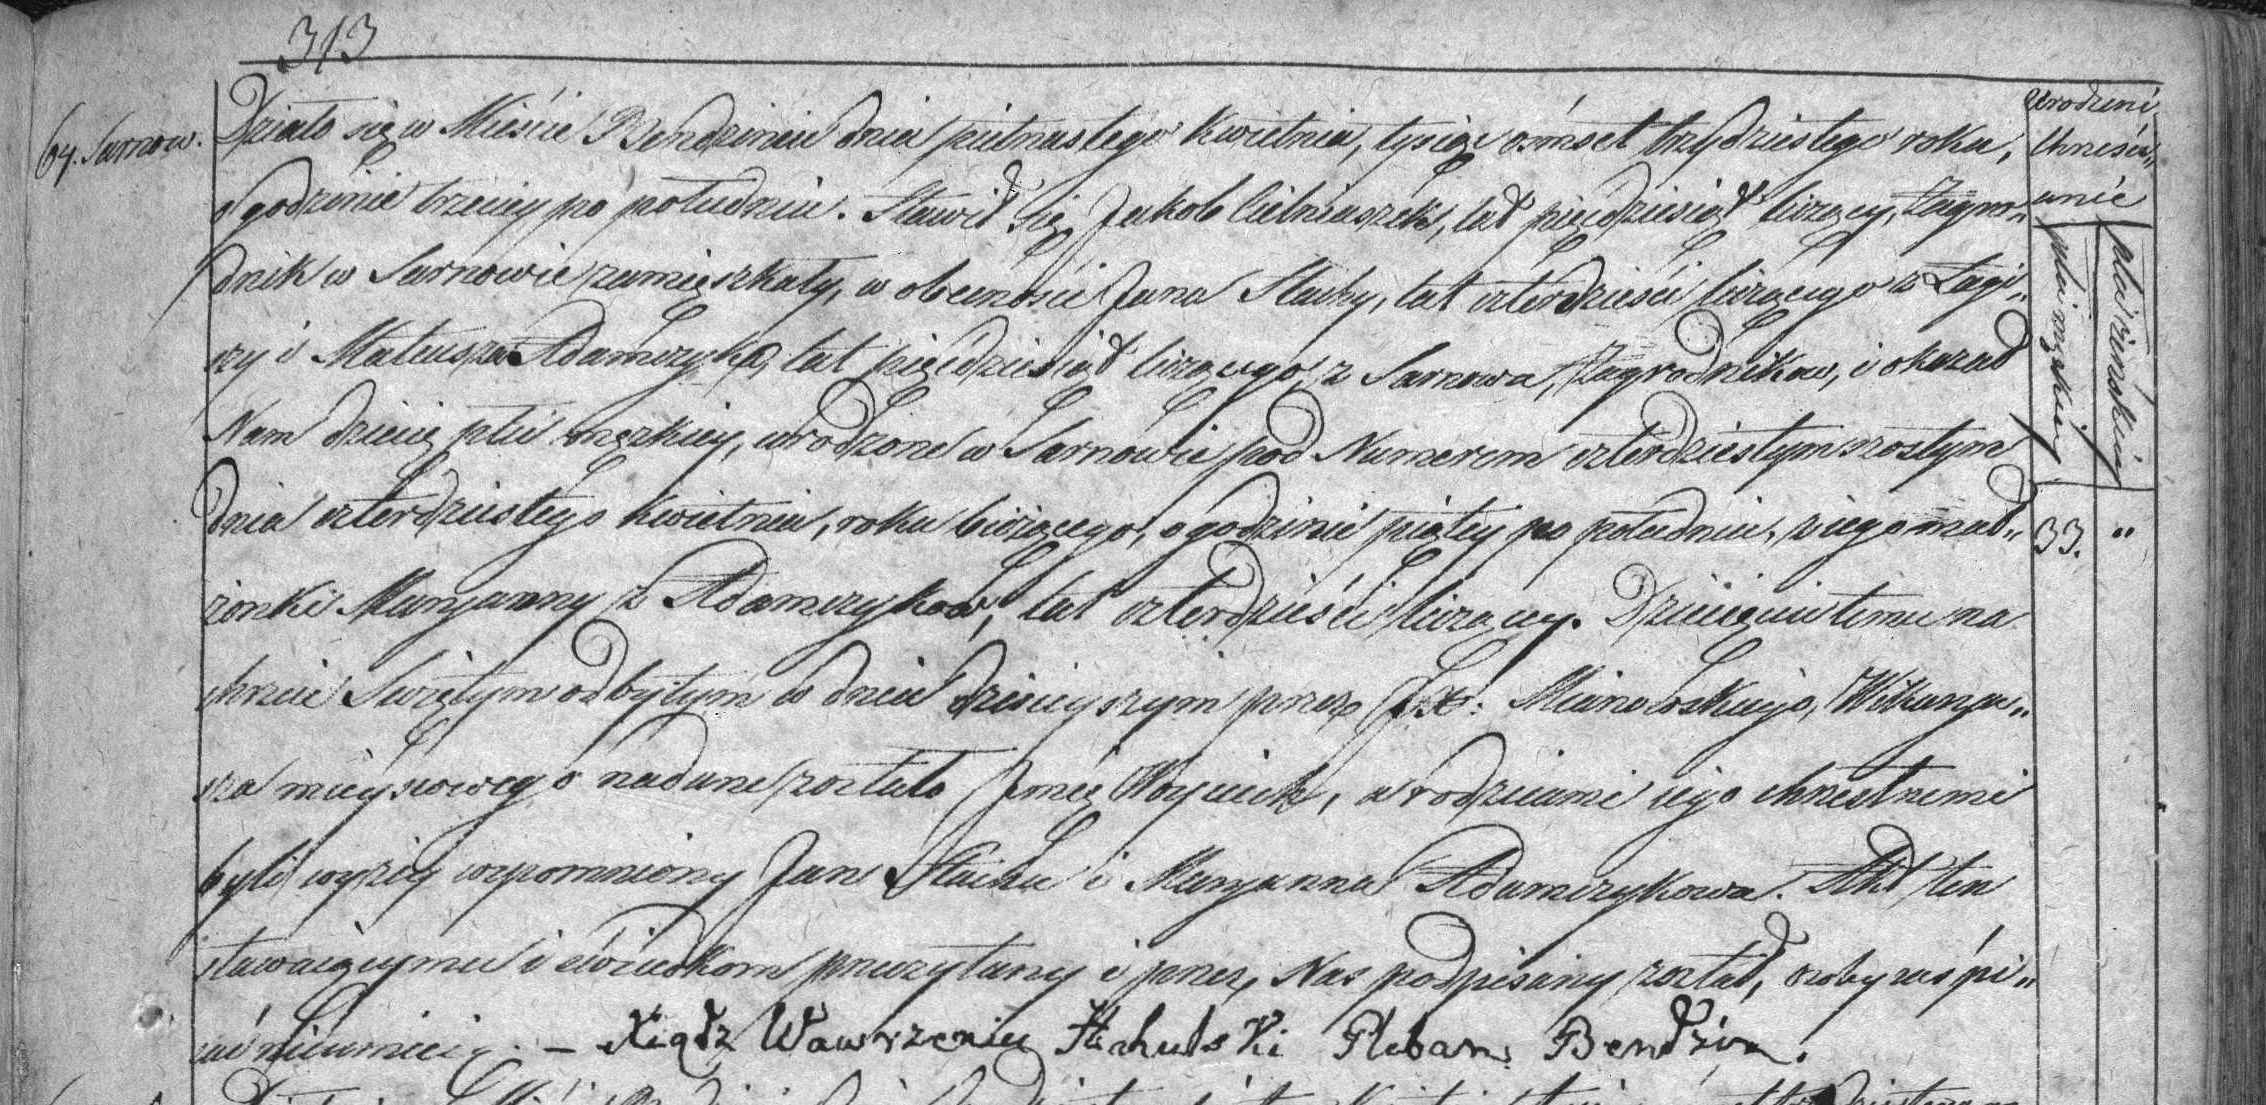 313
64. Sarnow.
Działo się w Mieście Bendzinie dnia pietnastego Kwietnia, tysiąc ośmset trzydziestego roku,
o godzinie trzeciey po południu. Stawił się Jakob Cieluiaszek, lat pięcdziesiąt liczący, Zagro„
dnik w Sarnowie zamięszkały, w obecności Jana Stachy, lat czterdzieści liczącego z Łagi„
szy i Mateusza Adamczyka, lat pięcdziesiąt liczącego, z Sarnowa, Zagrodnikow, i okazał
Nam dziecię płci męzkiey, urodzone w Sarnowie pod Numerem czterdziestym szostym
dnia czterdziestego Kwietnia, roku bieżącego, o godzinie piątey po południu, z iego mał„
żonki Maryanny z Adamczykow, lat czterdzieści liczącey. Dziecięciu temu na
chrzcie Swiętym odbytym w dniu dzisieyszym przez JX: Mianowskiego, Wikaryu„
sza mieyscowego nadane zostało Jmię Woyciech, a rodzicami iego chrzestnemi
byli wyżey wspomniony Jan Stacha i Maryanna Adamczykowa. Akt ten
stawaiącemu i świadkom przeczytany i przez Nas podpisany został, osoby zaś pi„
sać nieumieią. – Xiądz Wawrzeniec Stachulski Pleban Bendzin.
Urodzeni
Chrześci„
anie
płci męzkiey
płci żenskiey
33. „